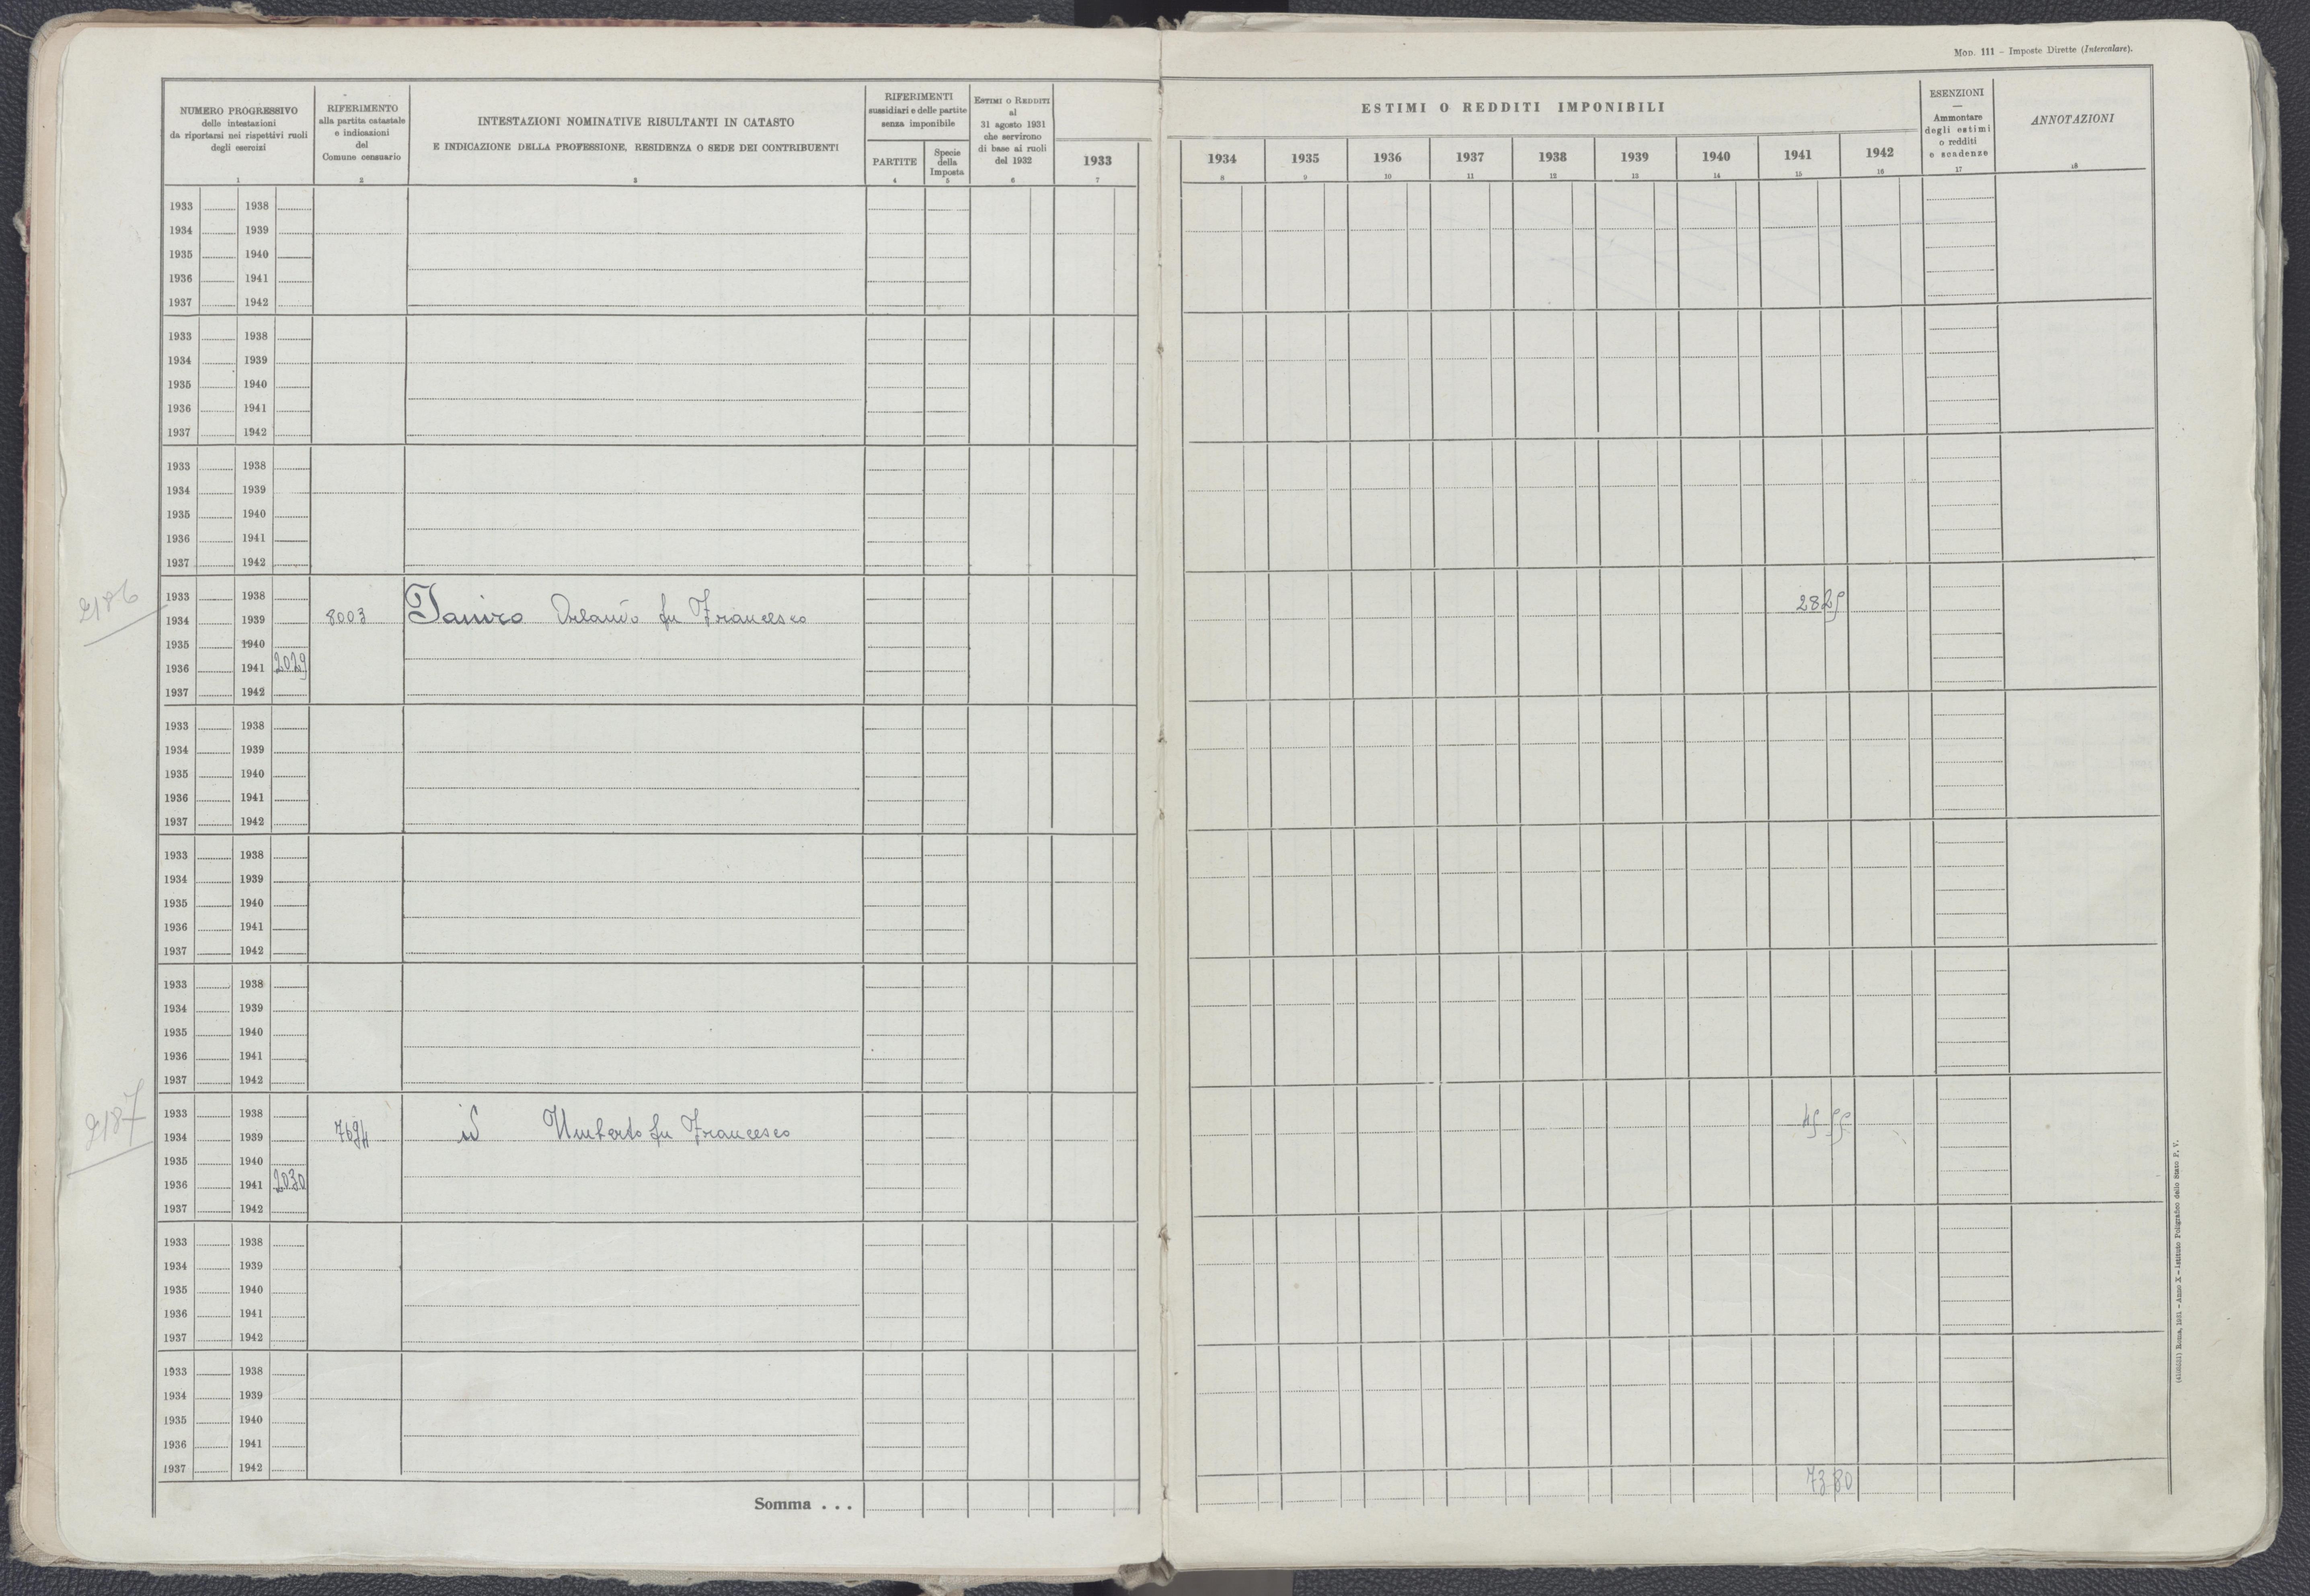 Mod. 111 – Imposte Dirette (Intercalare).
NUMERO PROGRESSIVO
delle intestazioni
da riportarsi nei rispettivi ruoli
degli esercizi
1
RIFERIMENTO
alla partita catastale
e indicazioni
del
Comune censuario
2
INTESTAZIONI NOMINATIVE RISULTANTI IN CATASTO
E INDICAZIONE DELLA PROFESSIONE, RESIDENZA O SEDE DEI CONTRIBUENTI
3
RIFERIMENTI
sussidiari e delle partite
senza imponibile
PARTITE
4
Specie
della
Imposta
5
Estimi o Redditi
al
31 agosto 1931
che servirono
di base ai ruoli
del 1932
6
1933
7
ESTIMI O REDDITI IMPONIBILI
1934 1935 1936 1937 1938 1939 1940 1941 1942
8 9 10 11 12 13 14 15 16
ESENZIONI
—
Ammontare
degli estimi
o redditi
e scadenze
17
ANNOTAZIONI
18
1933 1938
1934 1939
1935 1940
1936 1941
1937 1942
1933 1938
1934 1939
1935 1940
1936 1941
1937 1942
1933 1938
1934 1939
1935 1940
1936 1941
1937 1942
2186
1933 1938
1934 1939 8003 Ianiro Orlando fu Francesco 28 25
1935 1940
1936 1941 2029
1937 1942
1933 1938
1934 1939
1935 1940
1936 1941
1937 1942
1933 1938
1934 1939
1935 1940
1936 1941
1937 1942
1933 1938
1934 1939
1935 1940
1936 1941
1937 1942
2187
1933 1938
1934 1939 7694 id Umberto fu Francesco 45 55
1935 1940
1936 1941 2030
1937 1942
1933 1938
1934 1939
1935 1940
1936 1941
1937 1942
1933 1938
1934 1939
1935 1940
1936 1941
1937 1942
Somma . . . 73 80
Roma, 1931 – Anno X – Istituto Poligrafico dello Stato P. V.